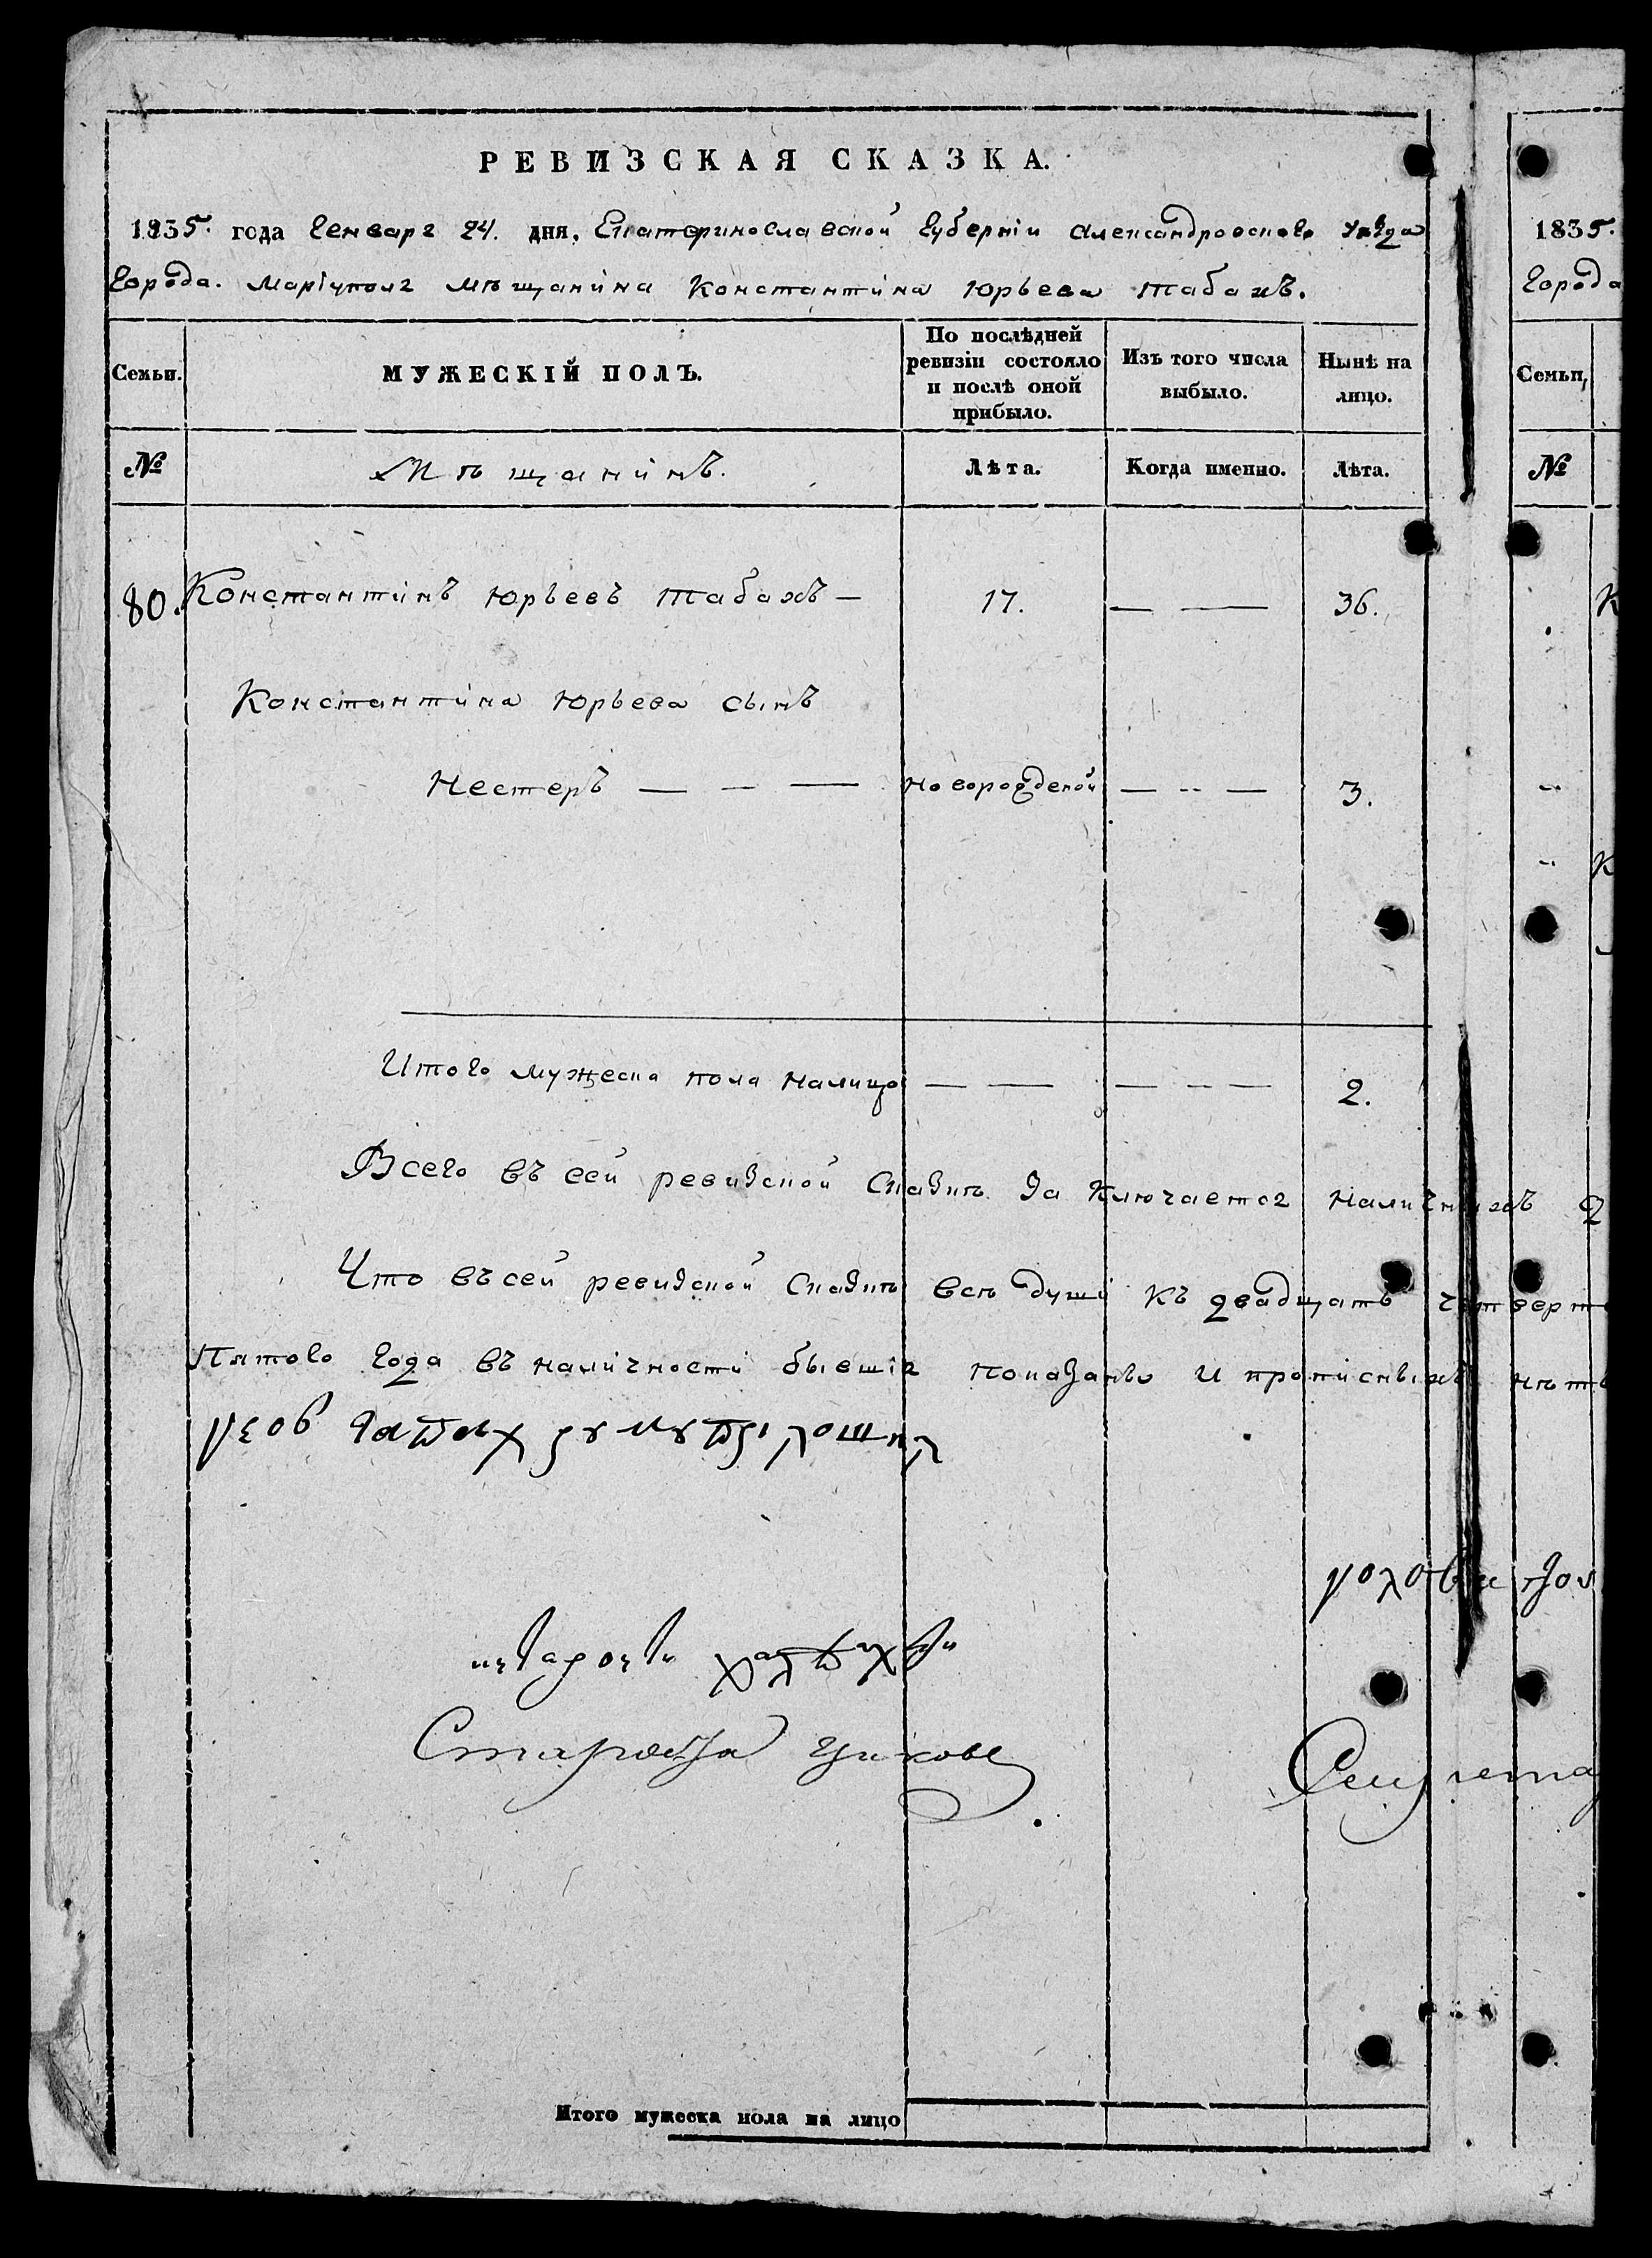 РЕВИЗСКАЯ СКАЗКА.
1835. года Генваря 24. дня, Екатеринославской Губерніи Александровскаго Уѣзда
Города. Маріуполя мѣщанина Константина Юрьева Табахъ.
Семьи.
МУЖЕСКІЙ ПОЛЪ.
По послѣдней ревизіи состояло и послѣ оной прибыло.
Изъ того числа выбыло.
Нынѣ на лицо.
№
Мѣщанинъ.
Лѣта.
Когда именно.
Лѣта.
80. Константинъ Юрьевъ Табахъ — 17. — — 36.
Константина Юрьева сынъ
Нестеръ — — — новорожденой — — — 3.
Итого мужеска пола налицо — — — — — 2.
Всего въ сей ревизской сказкѣ заключается наличныхъ 2
Что въ сей ревизской сказкѣ всѣ души къ двадцать четверт
Пятого года въ наличности бывшія показаны и прописныхъ нѣтъ
Староста
Секрета
Итого мужеска пола на лицо
1835.
Города
Семьи,
№
К
К